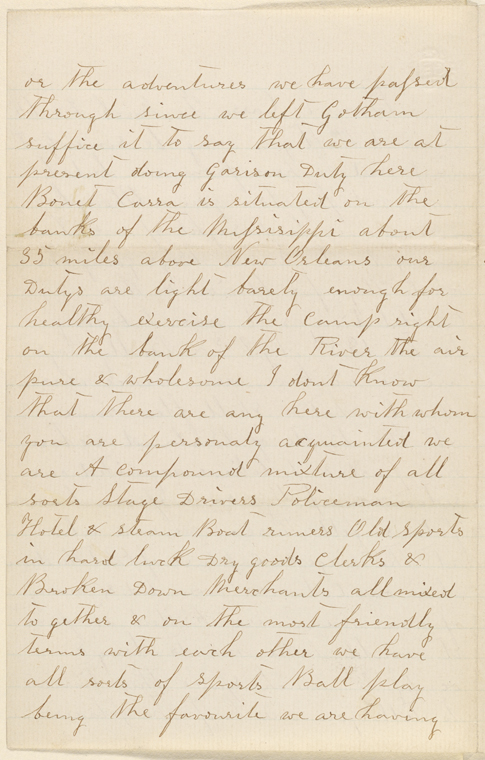 or the adventures we have passed
through since we left Gotham
suffice it to say that we are at
present doing Garison Duty here
Bonet Carra is situated on the
banks of the Missisippi about
35 miles above New Orleans our
Dutys are light barely enough for
healthy exercise the Camp right
on the bank of the River the air
pure & wholesome I dont Know
that there are any here with whom
you are personaly acquainted we
are A compound mixture of all
sorts Stage Drivers Policeman
Hotel & steam Boat runers Old sports
in hard luck Dry goods Clerks &
Broken Down Merchants all mixed
to gether & on the most friendly
terms with each other we have
all sorts of sports Ball play
being the favourite we are having